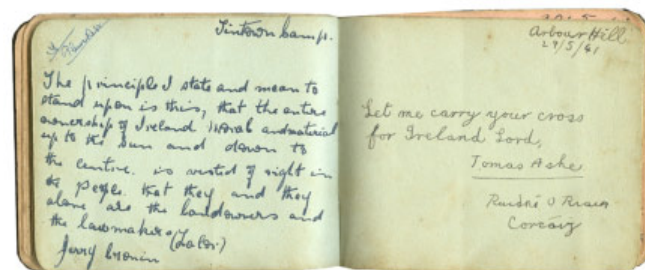 Tintown Camp.
The principle I state and mean to
stand upon is this, that the entire
ownership of Ireland moral and material
up to the sun and down to
the centre. is vested of right in
the people that they and they
alone are the landowners and
the lawmakers (Lalor)
Jerry Cronin
Arbour Hill
29/5/41
Let me carry your cross
for Ireland Lord,
Tomas Ashe
Ruidhé O Riain
Corcáig